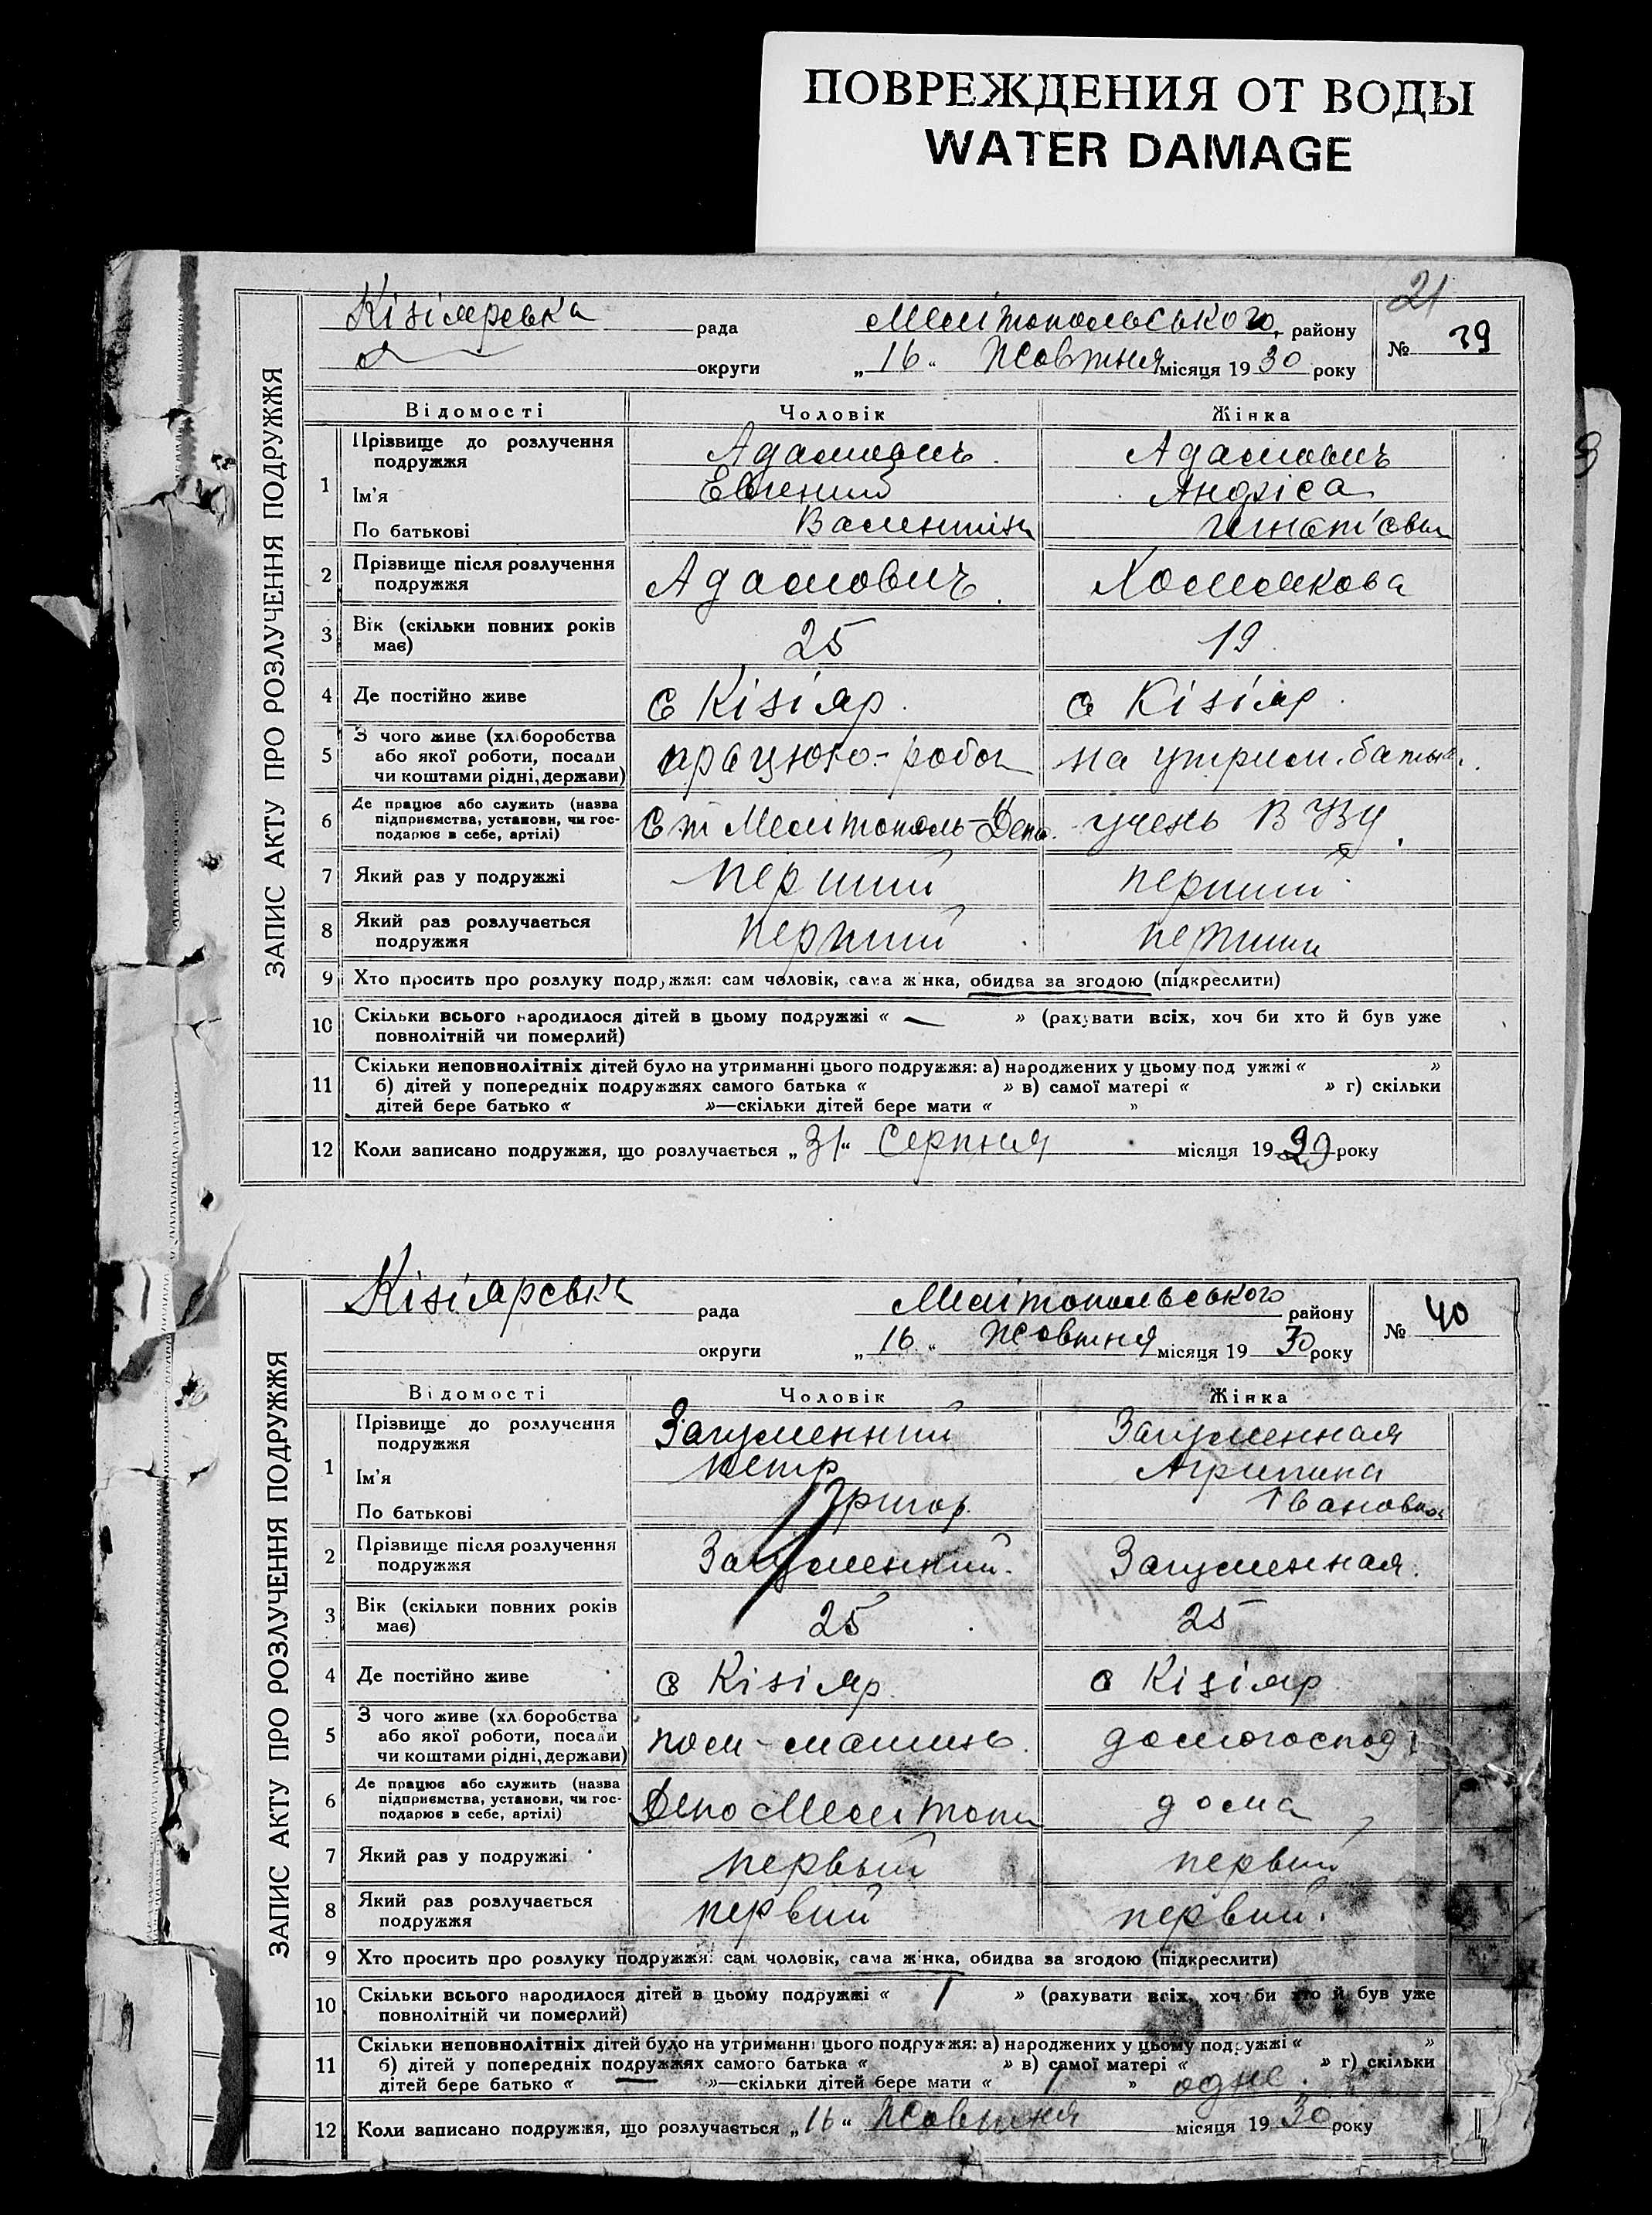 ПОВРЕЖДЕНИЯ ОТ ВОДЫ
WATER DAMAGE
21
ЗАПИС АКТУ ПРО РОЗЛУЧЕННЯ ПОДРУЖЖЯ
Кізіярська рада Мелітопольського району № 39
округи „16“ Жовтня місяця 1930 року
Відомості Чоловік Жінка
1 Прізвище до розлучення подружжя Адамович Адамович
Ім'я Евгений
По батькові Валентин Игнат'евн
2 Прізвище після розлучення подружжя Адамович Хомякова
3 Вік (скільки повних років має) 25 19
4 Де постійно живе с Кізіяр с Кізіяр
5 З чого живе (хл.боробства або якої роботи, посади чи коштами рідні, держави) працюю - робоч на утрим. батьк.
6 Де працює або служить (назва підприємства, установи, чи господарює в себе, артілі) Ст Мелітополь-Депо учень ВУЗу
7 Який раз у подружжі перший перший
8 Який раз розлучається подружжя перший перший
9 Хто просить про розлуку подружжя: сам чоловік, сама жінка, обидва за згодою (підкреслити)
10 Скільки всього народилося дітей в цьому подружжі « — » (рахувати всіх, хоч би хто й був уже
повнолітній чи померлий)
11 Скільки неповнолітніх дітей було на утриманні цього подружжя: а) народжених у цьому подружжі « »
б) дітей у попередніх подружжях самого батька « » в) самої матері « » г) скільки
дітей бере батько « »—скільки дітей бере мати « »
12 Коли записано подружжя, що розлучається „31“ Серпня місяця 1929 року
ЗАПИС АКТУ ПРО РОЗЛУЧЕННЯ ПОДРУЖЖЯ
Кізіярська рада Мелітопольського району № 40
округи „16“ Жовтня місяця 1930 року
Відомості Чоловік Жінка
1 Прізвище до розлучення подружжя Загуменний Загуменная
Ім'я Петр Агрипина
По батькові Григор. Івановна
2 Прізвище після розлучення подружжя Загуменний. Загуменная.
3 Вік (скільки повних років має) 25 25
4 Де постійно живе с Кізіяр с Кізіяр
5 З чого живе (хл.боробства або якої роботи, посади чи коштами рідні, держави) пом-машин домогоспод
6 Де працює або служить (назва підприємства, установи, чи господарює в себе, артілі) Депо Мелитопол дома
7 Який раз у подружжі первый первый
8 Який раз розлучається подружжя первий первий.
9 Хто просить про розлуку подружжя: сам чоловік, сама жінка, обидва за згодою (підкреслити)
10 Скільки всього народилося дітей в цьому подружжі « 1 » (рахувати всіх, хоч би хто й був уже
повнолітній чи померлий)
11 Скільки неповнолітніх дітей було на утриманні цього подружжя: а) народжених у цьому подружжі « »
б) дітей у попередніх подружжях самого батька « » в) самої матері « » г) скільки
дітей бере батько « — »—скільки дітей бере мати « 1 » одне.
12 Коли записано подружжя, що розлучається „16“ Жовтня місяця 1930 року